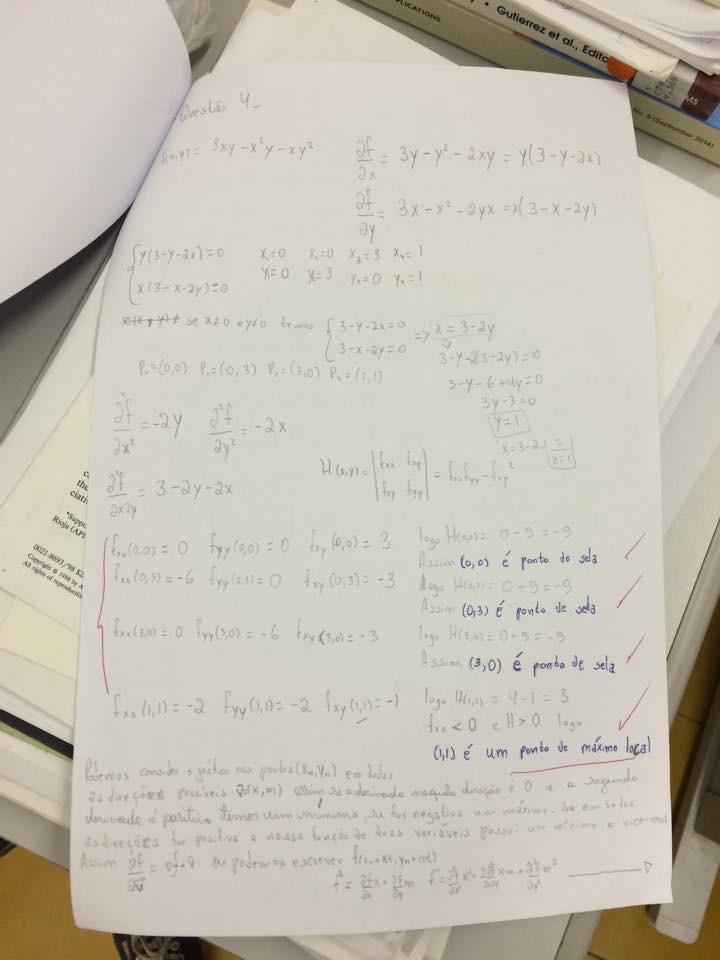 PLICATIONS
Gutierrez et al., Edito
MS
No. 6 (September 2016)
Questão 4_
f(x,y) = 3xy - x²y - xy²
∂f/∂x = 3y - y² - 2xy = y(3 - y - 2x)
∂f/∂y = 3x - x² - 2yx = x(3 - x - 2y)
{ y(3-y-2x)=0
x(3-x-2y)=0
x₁=0 x₂=0 x₃=3 x₄=1
y₁=0 y₂=3 y₃=0 y₄=1
se x≠0 e y≠0 temos { 3-y-2x=0 => x = 3-2y
3-x-2y=0
3-y-2(3-2y)=0
P₁=(0,0) P₂=(0,3) P₃=(3,0) P₄=(1,1)
3-y-6+4y=0
3y-3=0
y=1
x=3-2.1 = 1
x=1
∂²f/∂x² = -2y ∂²f/∂y² = -2x
H(x,y) = |fxx fxy
fxy fyy| = fxxfyy - fxy²
∂²f/∂x∂y = 3-2y-2x
fxx(0,0) = 0 fyy(0,0) = 0 fxy(0,0) = 3 logo H(0,0) = 0-9 = -9
Assim (0,0) é ponto de sela
fxx(0,3) = -6 fyy(0,3) = 0 fxy(0,3) = -3 logo H(0,3) = 0-9 = -9
Assim (0,3) é ponto de sela
fxx(3,0) = 0 fyy(3,0) = -6 fxy(3,0) = -3 logo H(3,0) = 0-9 = -9
Assim (3,0) é ponto de sela
fxx(1,1) = -2 fyy(1,1) = -2 fxy(1,1) = -1 logo H(1,1) = 4-1 = 3
fxx < 0 e H > 0 logo
(1,1) é um ponto de máximo local
Podemos consider o gráfico nos pontos (xₙ,yₙ) em todas
as direções possíveis (x,m) assim se a derivada naquela direção é 0 e a segunda
derivada é positiva temos um mínimo, se for negativa um máximo. Se em todas
as direções for positiva a nossa função de duas variáveis possui um mínimo e vice-versa
Assim ∂f/∂v = ∇f·v ou podemos escrever f(xₙ+xt, yₙ+mt)
f' = ∂f/∂x x + ∂f/∂y m f'' = ∂²f/∂x² x² + 2∂²f/∂x∂y xm + ∂²f/∂y² m²
ciati
Rioja (AP
0021-8693/98 $2
Copyright © 1998 by A
All rights of reproduction